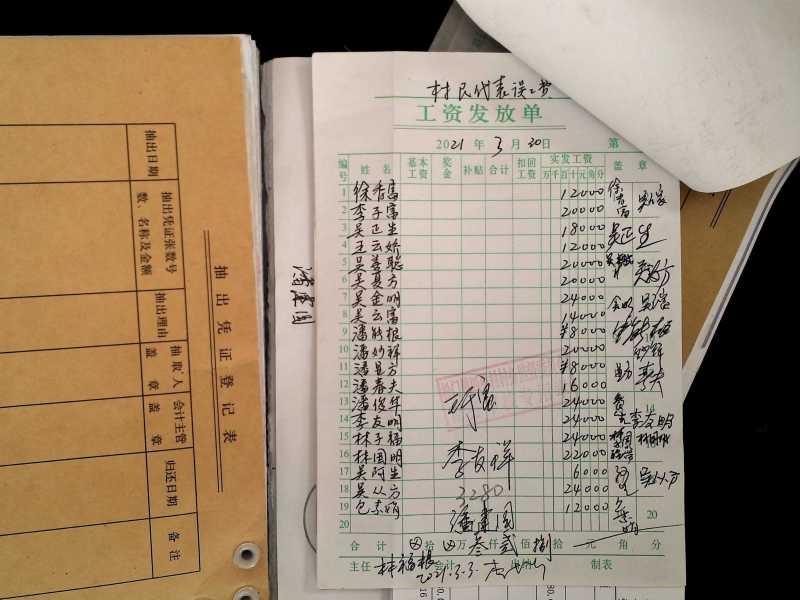 抽出凭证登记表
抽出日期
抽出凭证张数号数、名称及金额
抽出理由
抽取人盖章
会计主管盖章
归还日期
备注
潘建国
村民代表误工费
工资发放单
2021年3月30日 第
编号 姓名 基本工资 奖金 补贴 合计 扣回工资 实发工资 盖章
万千百十元角分
1 徐香富 12000
2 李子富 20000
3 吴正生 18000 吴正生
4 王云娇 12000
5 吴善聪 20000
6 吴夏方 20000
7 吴金明 24000
8 吴云富 14000
9 潘能根 ¥8000
10 潘妙祥 20000
11 潘显方 ¥8000
12 潘春夫 16000
13 潘俊华 24000
14 李友明 24000 李友明 14
15 林子福 24000
16 林国明 李友祥 22000
17 吴阿生 6000
18 吴从方 3280 24000
19 包素娟 12000
20 潘建国 20
合计 拾 万 仟叁 佰贰 拾捌 元 角 分
主任 林福根 会计 出纳 制表
2021.3.3.